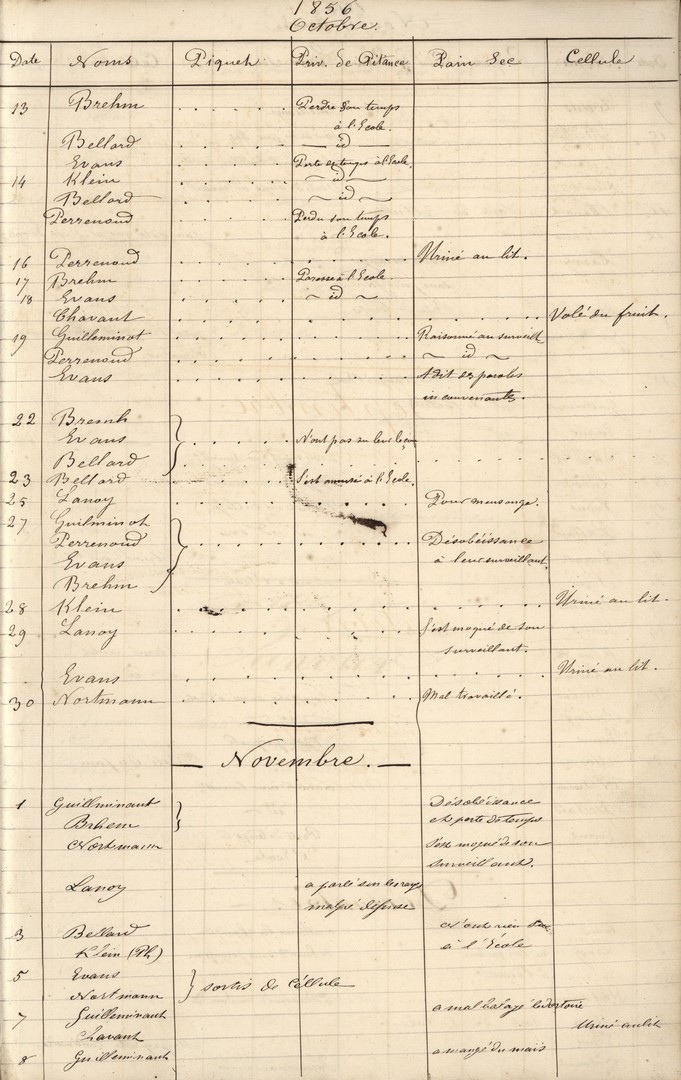 1856
Octobre.
Date Noms Piquet Priv. de Pitance Pain Sec Cellule
13 Brehm Perdre son temps
à l'Ecole.
Bellard id
Evans Perte de temps à l'Ecole.
14 Klein id
Bellard id
Perrenoud Perdu son temps
à l'Ecole.
16 Perrenoud Uriné au lit.
17 Brehm Paresse à l'Ecole
18 Evans id
Chavant Volé du fruit.
19 Guilleminot Raisonné au surveill
Perrenoud id
Evans A dit des paroles
inconvenantes.
22 Bremh
Evans N'ont pas su leur leçon
Bellard
23 Bellard S'est amusé à l'Ecole.
25 Lanoy Pour mensonge.
27 Guilminot
Perrenoud Désobéissance
Evans à leur surveillant.
Brehm
28 Klein Uriné au lit.
29 Lanoy S'est moqué de son
surveillant.
Evans Uriné au lit.
30 Nortmann Mal travaillé.
Novembre.
1 Guilleminaut Désobéissance
Brhem et perte de temps
Nortmann s'est moqué de son
surveillant.
Lanoy a parlé sur les rangs
malgré défense
3 Bellard N'ont rien
Klein (Ph) à l'École
5 Evans
Nortmann sortis de Céllule
7 Guilleminaut a mal balayé
Chavant Uriné au lit
8 Guilleminaut a mangé du maïs